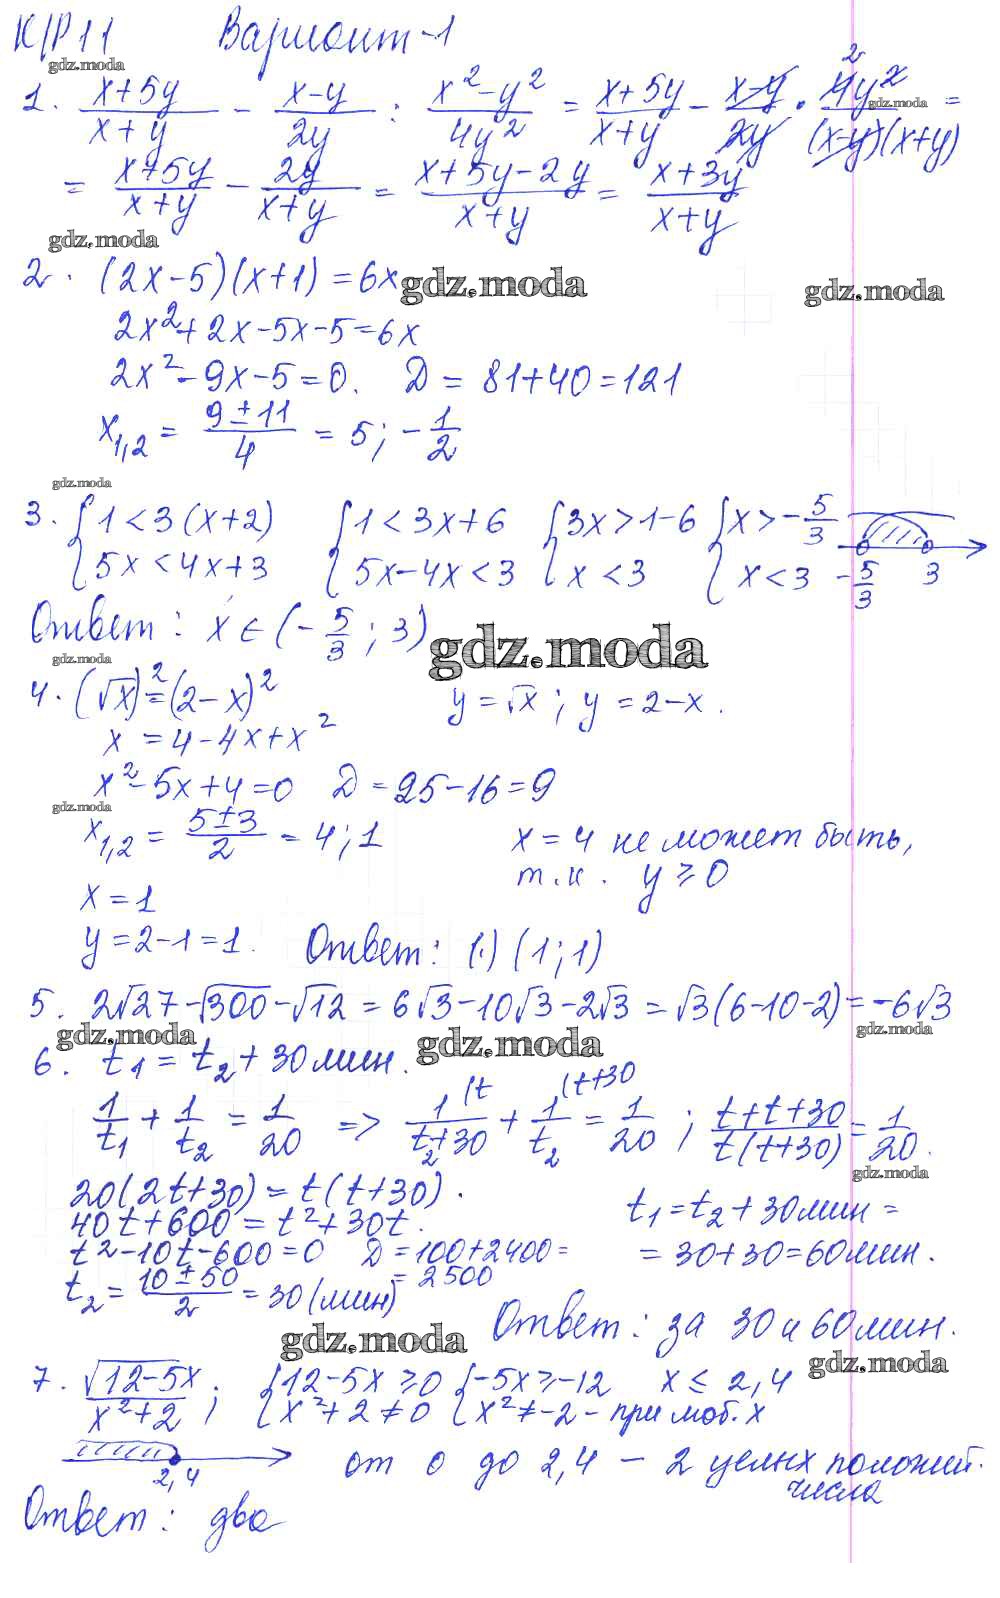 К/Р 11 Вариант-1
gdz.moda
1. (x+5y)/(x+y) - (x-y)/(2y) : (x²-y²)/(4y²) = (x+5y)/(x+y) - (x-y)/(2y) · (4y²)/((x-y)(x+y)) = 2
gdz.moda
= (x+5y)/(x+y) - (2y)/(x+y) = (x+5y-2y)/(x+y) = (x+3y)/(x+y)
gdz.moda
2. (2x-5)(x+1) = 6x
gdz.moda gdz.moda
2x²+2x-5x-5=6x
2x²-9x-5=0. Д = 81+40=121
x1,2 = (9±11)/4 = 5; -1/2
gdz.moda
3. {1<3(x+2) {1<3x+6 {3x>1-6 {x>-5/3
{5x<4x+3 {5x-4x<3 {x<3 {x<3 -5/3 3
Ответ: x∈(-5/3; 3)
gdz.moda
gdz.moda
4. (√x)²=(2-x)² y=√x; y=2-x.
x = 4-4x+x²
x²-5x+4=0 Д=25-16=9
gdz.moda
x1,2 = (5±3)/2 = 4; 1 x=4 не может быть,
т.к. y⩾0
x=1
y=2-1=1. Ответ: (·) (1;1)
5. 2√27-√300-√12 = 6√3-10√3-2√3 = √3(6-10-2)=-6√3
gdz.moda gdz.moda gdz.moda
6. t1 = t2+30мин.
1/t1 + 1/t2 = 1/20 => 1/(t2+30) (t + 1/t2 (t+30 = 1/20; (t+t+30)/(t(t+30)) = 1/20.
gdz.moda
20(2t+30)=t(t+30).
40t+600=t²+30t. t1=t2+30мин=
t²-10t-600=0 Д=100+2400= =30+30=60мин.
t2 = (10±50)/2 = 30(мин) =2500
Ответ: за 30 и 60мин.
gdz.moda gdz.moda
7. √(12-5x)/(x²+2); {12-5x⩾0 {-5x⩾-12 x⩽2,4
{x²+2≠0 {x²≠-2 - при люб. x
2,4 от 0 до 2,4 - 2 целых положит.
числа
Ответ: два